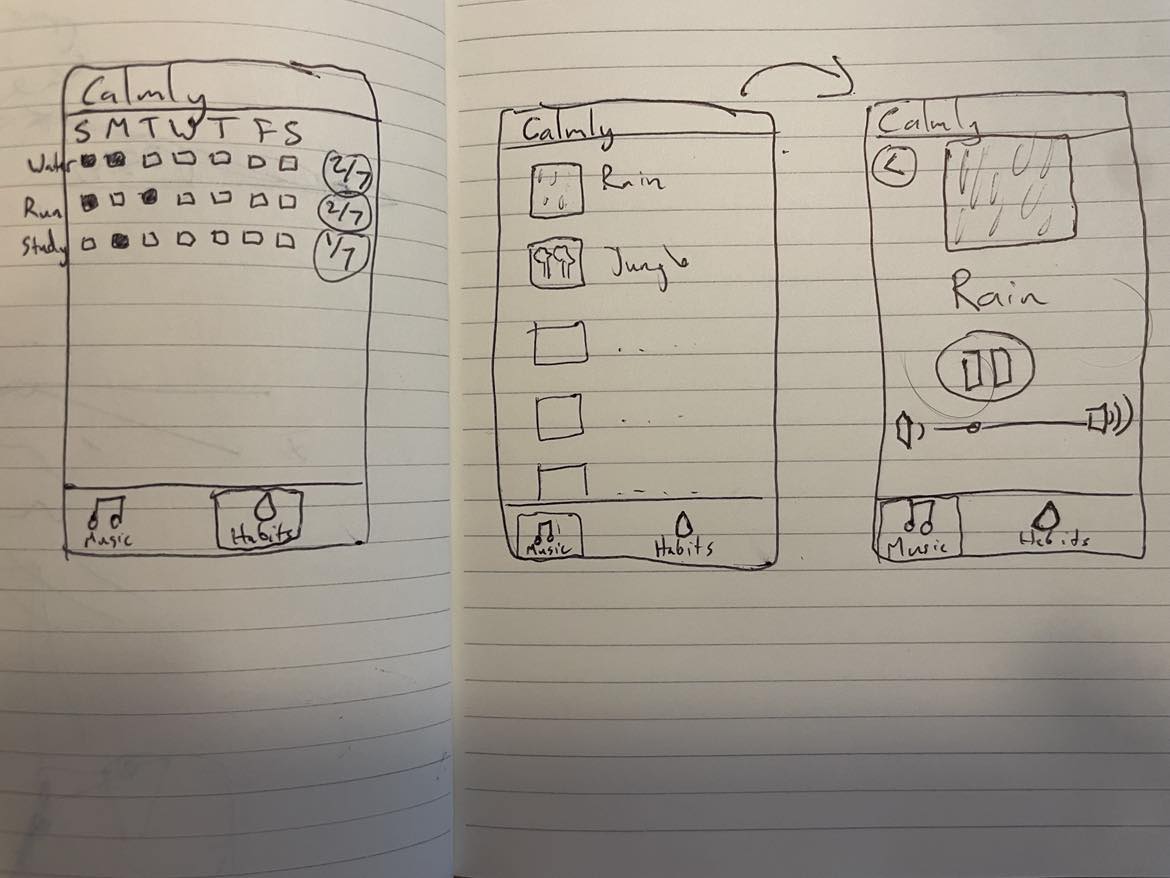 Calmly
S M T W T F S
Water 2/7
Run 2/7
Study 1/7
Music Habits
Calmly
Rain
Jungle
Music Habits
Calmly
Rain
Music Habits